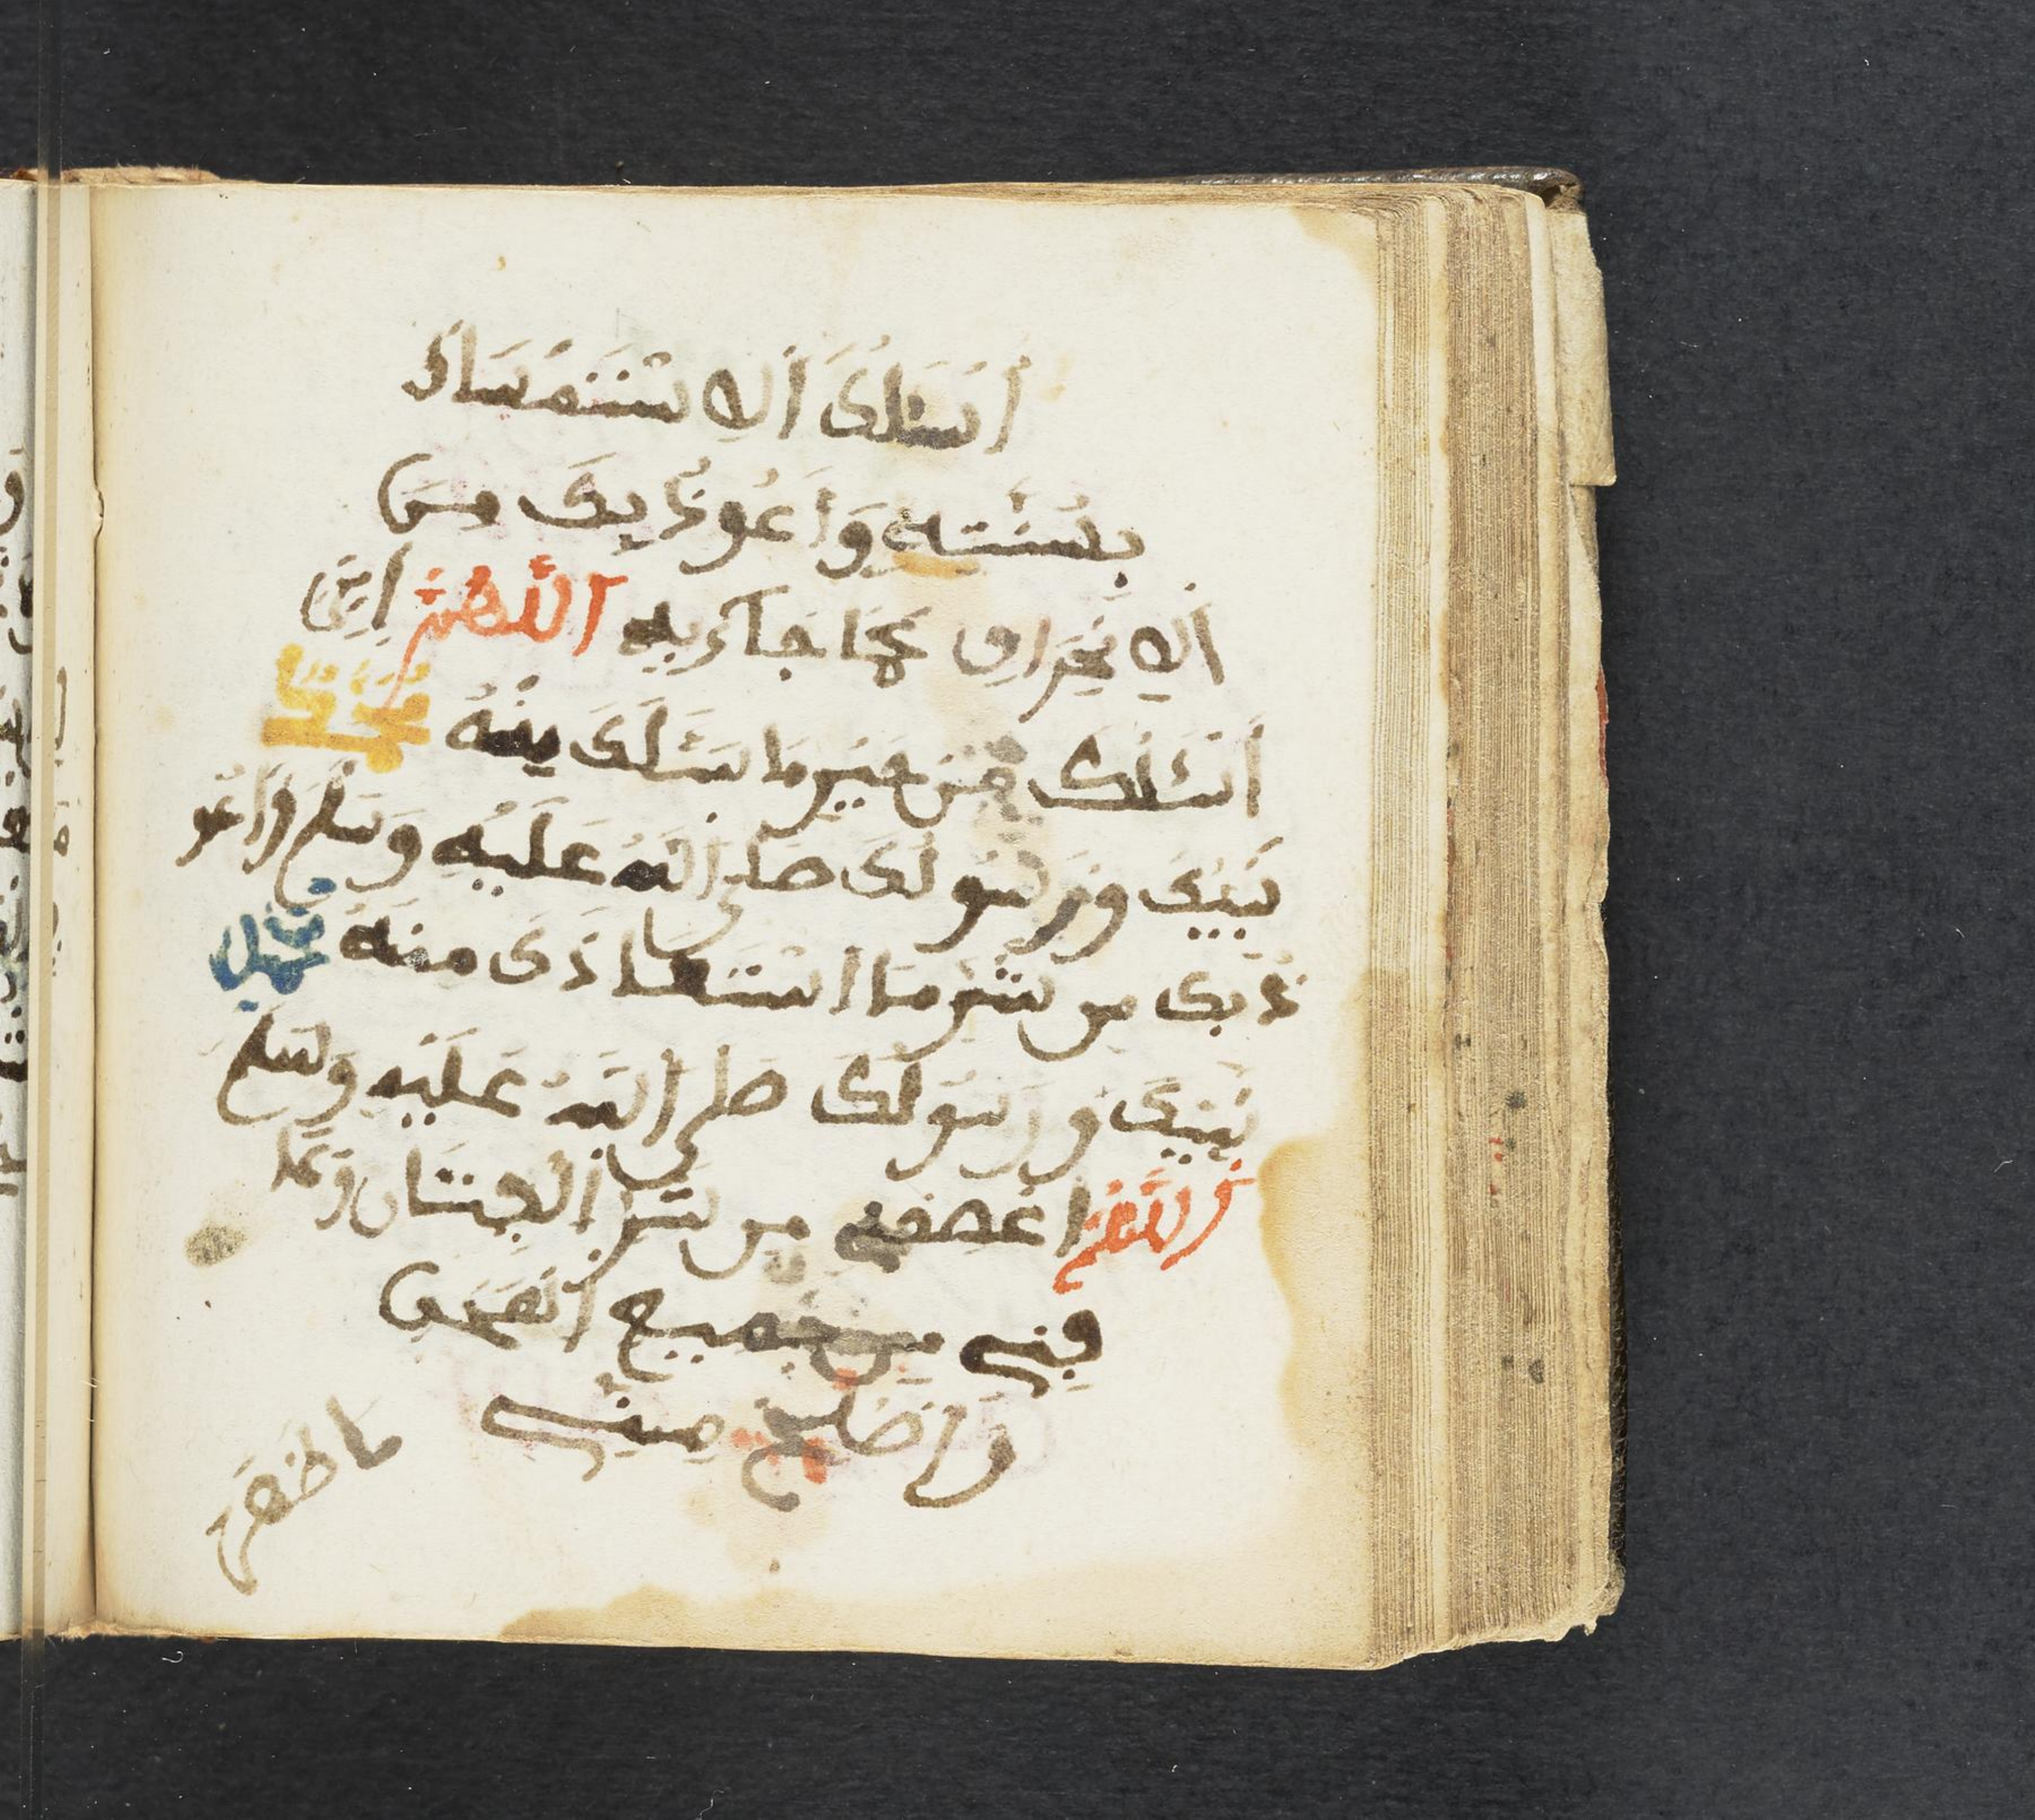 أسئلك الاستمساك
بسنته وأعوذ بك من
الانحراف عما جاء به اللهم إني
أسئلك من خير ما سئلك منه محمد
نبيك ورسولك صلى الله عليه وسلم وأعو
ذ بك من شر ما استعاذك منه محمد
نبيك ورسولك صلى الله عليه وسلم
اللهم اعصمني من شر الفتن وعا
فني من جميع المحن
وأصلح مني
ما ظهر